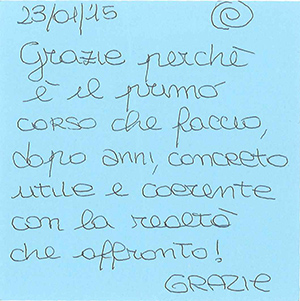 23/01/15
Grazie perchè
è il primo
corso che faccio,
dopo anni, concreto
utile e coerente
con la realtà
che affronto!
GRAZIE